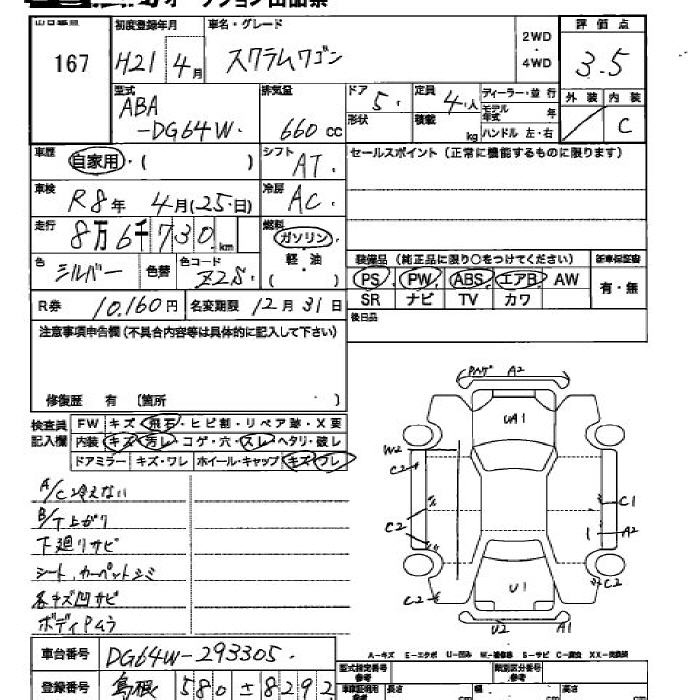 オークション出品票
出品番号 初度登録年月 車名・グレード 2WD ・ 4WD 評価点
167 H21年 4月 スクラムワゴン 3.5
型式 ABA-DG64W 排気量 660cc ドア 5 定員 4人 ディーラー・並行 外装 内装
形状 積載 kg モデル年式 年 ハンドル 左・右 C
車歴 自家用・( ) シフト AT セールスポイント(正常に機能するものに限ります)
車検 R8年 4月(25日) 冷房 AC
走行 8万6千730km 燃料 ガソリン 軽油 ( )
装備品(純正品に限り○をつけてください) 新車保証書
色 シルバー 色替 色コード Z2S PS PW ABS エアB AW 有・無
R券 10,160円 名変期限 12月31日 SR ナビ TV カワ
後日品
注意事項申告欄(不具合内容等は具体的に記入して下さい)
修復歴 有 〔箇所 〕
検査員記入欄 FW キズ・飛石・ヒビ割・リペア跡・X要
内装 キズ・汚レ・コゲ・穴・スレ・ヘタリ・破レ
ドアミラー キズ・ワレ ホイール・キャップ キズ・ワレ
A/C冷えない
B/T上がり
下廻りサビ
シート、カーペットシミ
各キズ凹サビ
ボディPムラ
A2
UA1
W2
C2
C1
C2
A2
C2
C2
U1
U2 A1
A-キズ E-エクボ U-凹み W-補修跡 S-サビ C-腐食 XX-交換済
車台番号 DG64W-293305
登録番号 島根 580 ± 8292
型式指定番号 参考 類別区分番号 参考
長さ cm 幅 cm 高さ cm